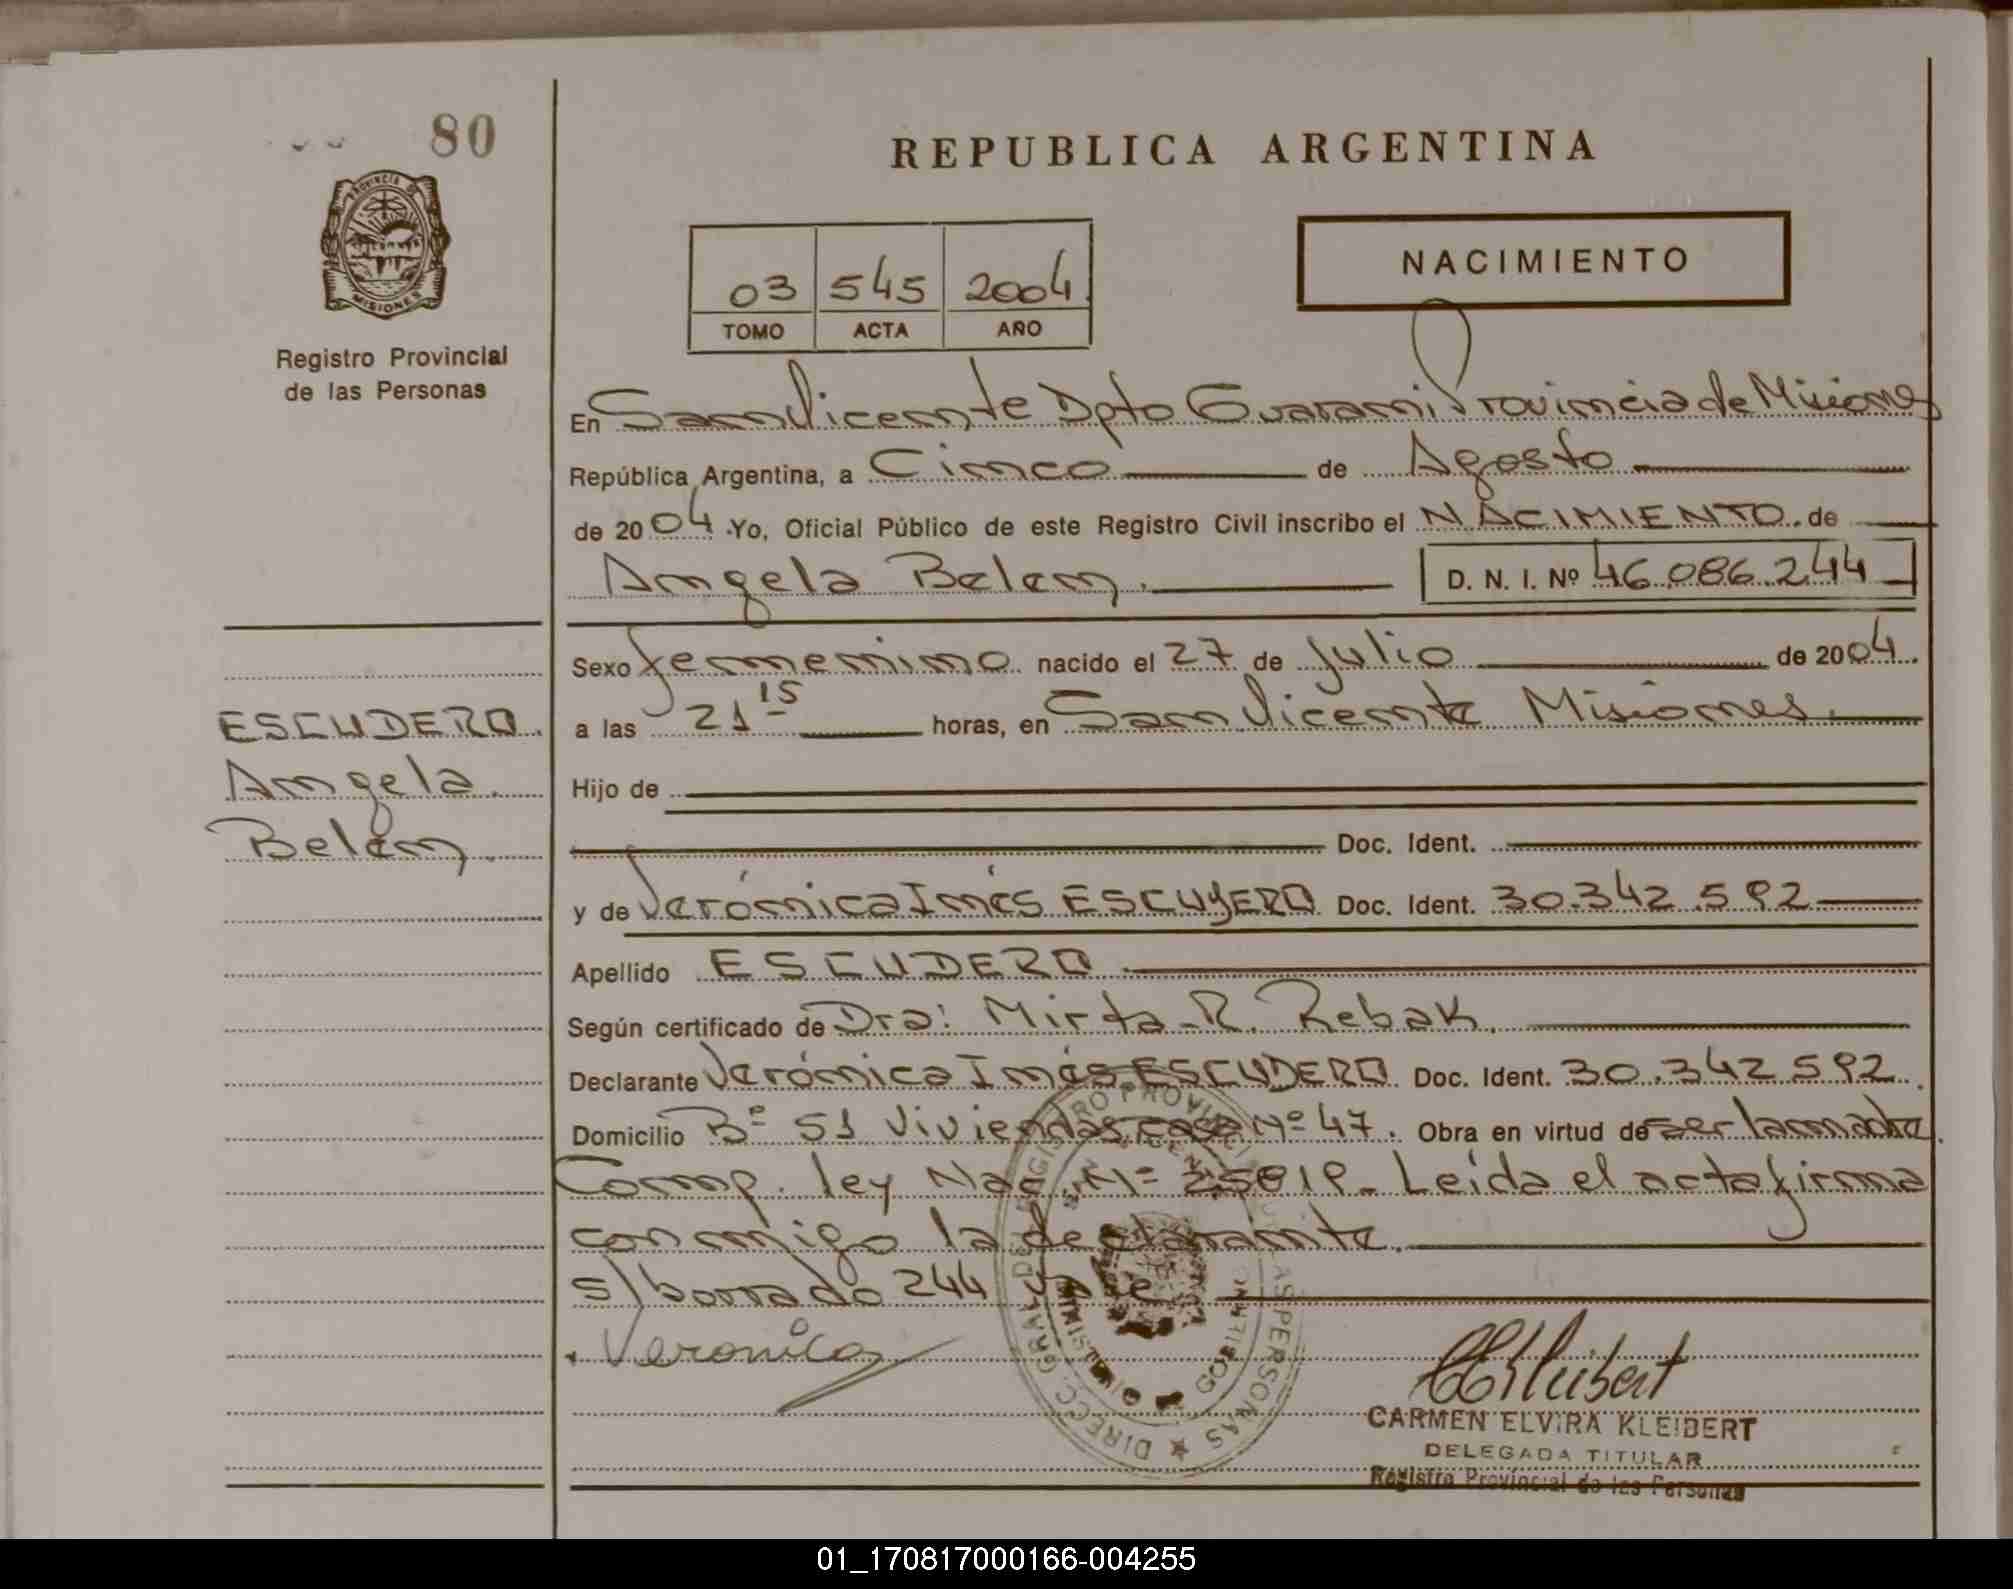 80
PROVINCIA DE
MISIONES
Registro Provincial
de las Personas
REPUBLICA ARGENTINA
03 545 2004
TOMO ACTA AÑO
NACIMIENTO
En San Vicente Dpto Guarani Provincia de Misiones
República Argentina, a Cinco de Agosto
de 2004 .Yo, Oficial Público de este Registro Civil inscribo el NACIMIENTO. de
Angela Belen. D. N. I. Nº 46.086.244
Sexo femenino nacido el 27 de Julio de 2004.
a las 21 15 horas, en San Vicente Misiones.
Hijo de
Doc. Ident.
y de Verónica Inés ESCUDERO Doc. Ident. 30.342.592
Apellido ESCUDERO
Según certificado de Dra: Mirta R. Rebak.
Declarante Verónica Inés ESCUDERO Doc. Ident. 30.342.592.
Domicilio Bº 51 Viviendas casa Nº 47. Obra en virtud de ser la madre.
Comp. ley Nac. Nº 25819- Leída el acta firma
conmigo la declarante.
s/borrado 244 vale
Veronica
ESCUDERO.
Angela
Belén.
DIRECC. GRAL. DEL REGISTRO PROVINCIAL DE LAS PERSONAS
CARMEN ELVIRA KLEIBERT
DELEGADA TITULAR
Registro Provincial de las Personas
01_170817000166-004255